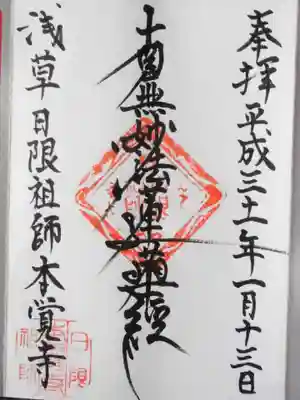 奉拝平成三十一年一月十三日
南無妙法蓮華経
浅草日限祖師本覚寺